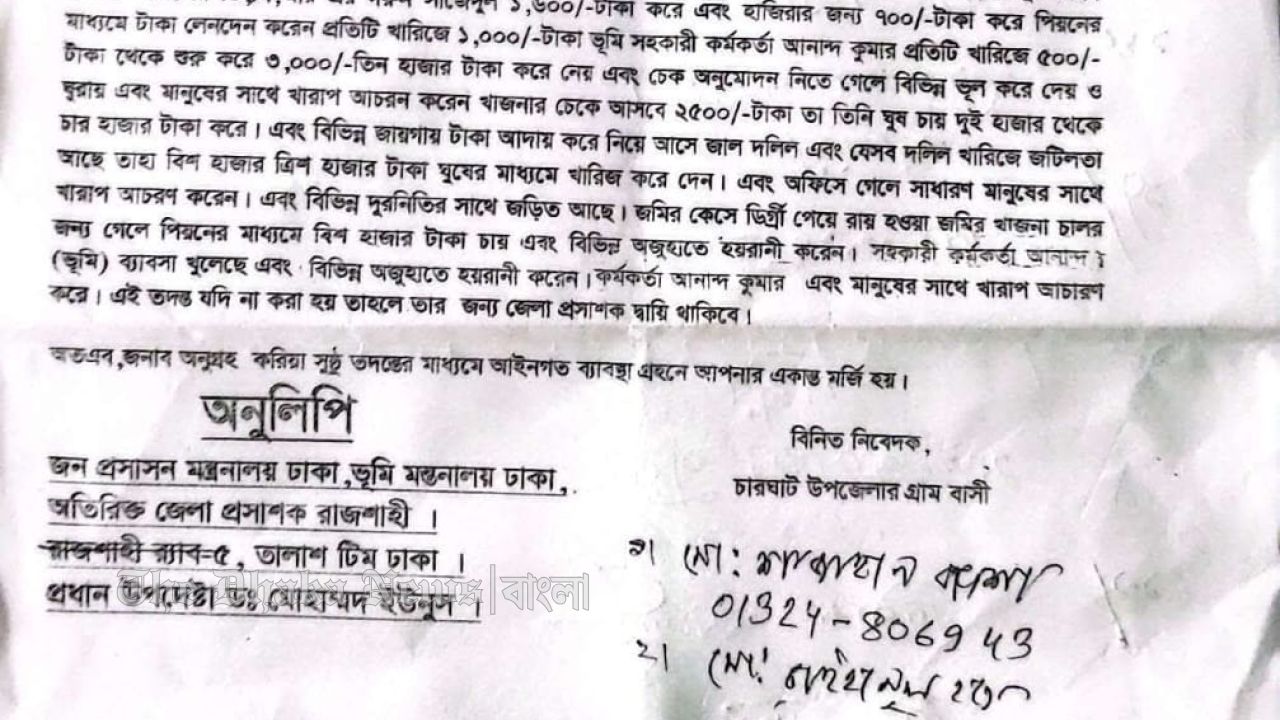 ১,৬০০/-টাকা করে এবং হাজিরার জন্য ৭০০/-টাকা করে পিয়নের
মাধ্যমে টাকা লেনদেন করেন প্রতিটি খারিজে ১,০০০/-টাকা ভূমি সহকারী কর্মকর্তা আনান্দ কুমার প্রতিটি খারিজে ৫০০/-
টাকা থেকে শুরু করে ৩,০০০/-তিন হাজার টাকা করে নেয় এবং চেক অনুমোদন নিতে গেলে বিভিন্ন ভূল করে দেয় ও
ঘুরায় এবং মানুষের সাথে খারাপ আচরন করেন খাজনার চেকে আসবে ২৫০০/-টাকা তা তিনি ঘুষ চায় দুই হাজার থেকে
চার হাজার টাকা করে। এবং বিভিন্ন জায়গায় টাকা আদায় করে নিয়ে আসে জাল দলিল এবং যেসব দলিল খারিজে জটিলতা
আছে তাহা বিশ হাজার ত্রিশ হাজার টাকা ঘুষের মাধ্যমে খারিজ করে দেন। এবং অফিসে গেলে সাধারণ মানুষের সাথে
খারাপ আচরণ করেন। এবং বিভিন্ন দুরনিতির সাথে জড়িত আছে। জমির কেসে ডিগ্রী পেয়ে রায় হওয়া জমির খাজনা চালর
জন্য গেলে পিয়নের মাধ্যমে বিশ হাজার টাকা চায় এবং বিভিন্ন অজুহাতে হয়রানী করেন। সহকারী কর্মকর্তা আনান্দ
(ভূমি) ব্যাবসা খুলেছে এবং বিভিন্ন অজুহাতে হয়রানী করেন। কর্মকর্তা আনান্দ কুমার এবং মানুষের সাথে খারাপ আচারণ
করে। এই তদন্ত যদি না করা হয় তাহলে তার জন্য জেলা প্রসাশক দ্বায়ি থাকিবে।
অতএব,জনাব অনুগ্রহ করিয়া সুষ্ঠু তদন্তের মাধ্যমে আইনগত ব্যাবস্থা গ্রহনে আপনার একান্ত মর্জি হয়।
অনুলিপি
জন প্রসাসন মন্ত্রনালয় ঢাকা,ভূমি মন্ত্রনালয় ঢাকা,
অতিরিক্ত জেলা প্রসাশক রাজশাহী ।
রাজশাহী র‍্যাব-৫, তালাশ টিম ঢাকা ।
প্রধান উপদেষ্টা ডঃ মোহাম্মদ ইউনুস ।
News|বাংলা
বিনিত নিবেদক,
চারঘাট উপজেলার গ্রাম বাসী
১। মো: শাজাহান
01324-806943
২। মো: